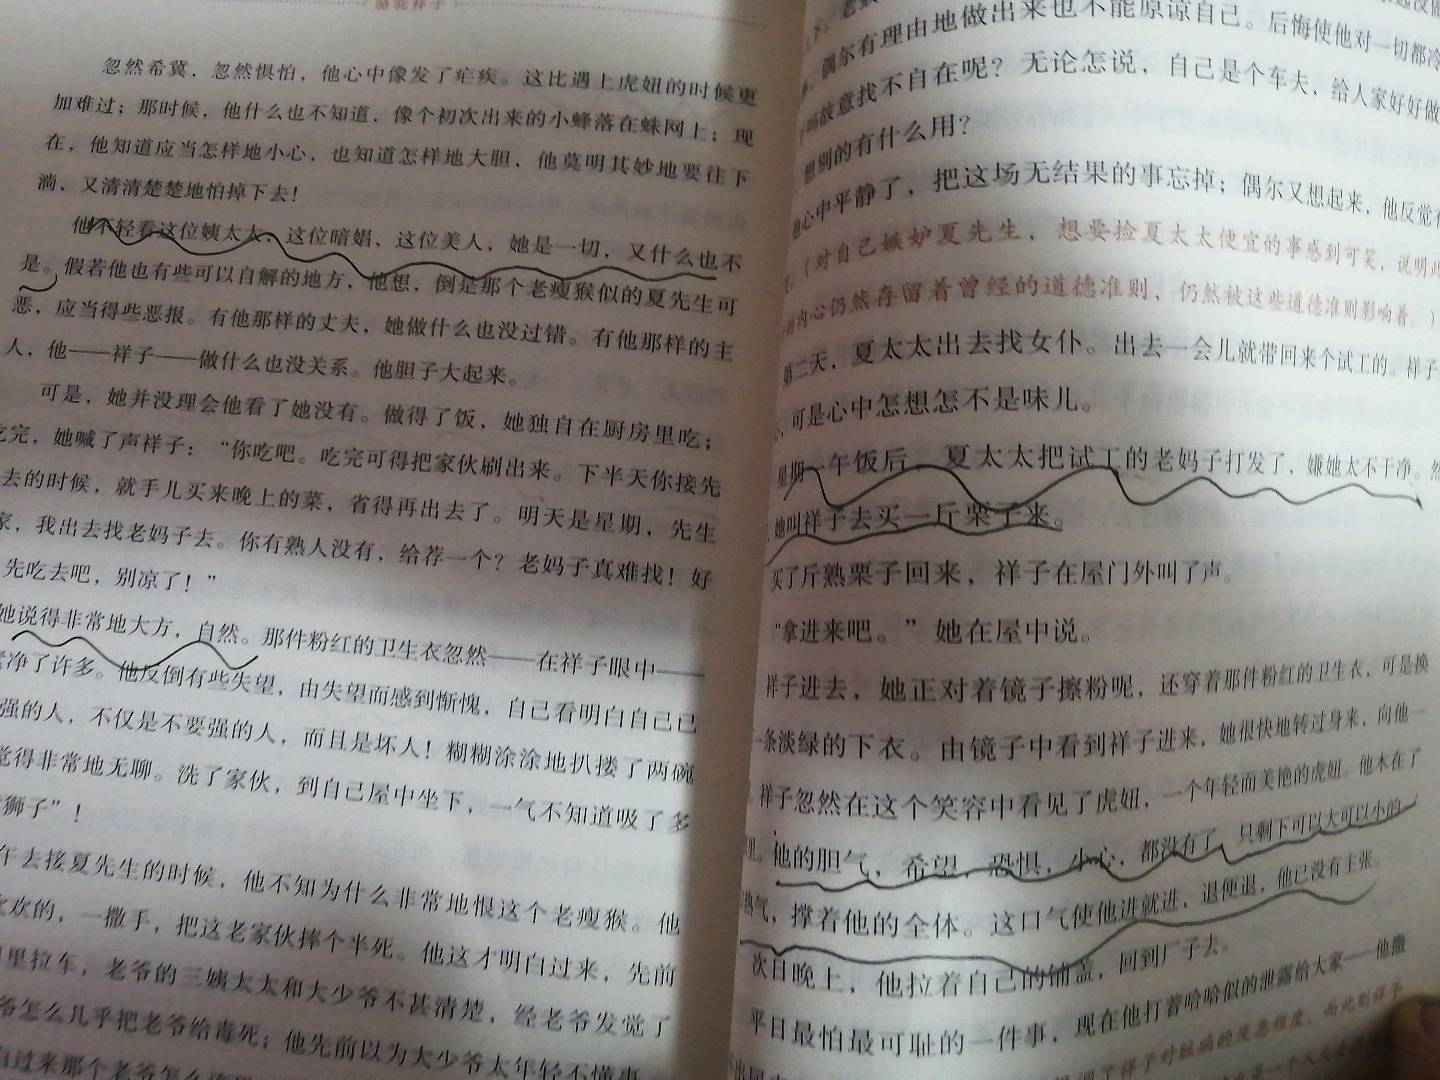 骆驼祥子
忽然希冀，忽然惧怕，他心中像发了疟疾。这比遇上虎妞的时候更
加难过；那时候，他什么也不知道，像个初次出来的小蜂落在蛛网上；现
在，他知道应当怎样地小心，也知道怎样地大胆，他莫明其妙地要往下
淌，又清清楚楚地怕掉下去！
他不轻看这位姨太太，这位暗娼，这位美人，她是一切，又什么也不
是。假若他也有些可以自解的地方，他想，倒是那个老瘦猴似的夏先生可
恶，应当得些恶报。有他那样的丈夫，她做什么也没过错。有他那样的主
人，他——祥子——做什么也没关系。他胆子大起来。
可是，她并没理会他看了她没有。做得了饭，她独自在厨房里吃；
吃完，她喊了声祥子：“你吃吧。吃完可得把家伙刷出来。下半天你接先
去的时候，就手儿买来晚上的菜，省得再出去了。明天是星期，先生
家，我出去找老妈子去。你有熟人没有，给荐一个？老妈子真难找！好
先吃去吧，别凉了！”
她说得非常地大方，自然。那件粉红的卫生衣忽然——在祥子眼中——
净了许多。他反倒有些失望，由失望而感到惭愧，自己看明白自己已
强的人，不仅是不要强的人，而且是坏人！糊糊涂涂地扒搂了两碗
觉得非常地无聊。洗了家伙，到自己屋中坐下，一气不知道吸了多
狮子”！
午去接夏先生的时候，他不知为什么非常地恨这个老瘦猴。他
欢的，一撒手，把这老家伙摔个半死。他这才明白过来，先前
里拉车，老爷的三姨太太和大少爷不甚清楚，经老爷发觉了
爷怎么几乎把老爷给毒死；他先前以为大少爷太年轻不懂事
白过来那个老爷怎么
偶尔有理由地做出来也不能原谅自己。后悔使他对一切都冷
故意找不自在呢？无论怎说，自己是个车夫，给人家好好做
想别的有什么用？
他心中平静了，把这场无结果的事忘掉；偶尔又想起来，他反觉有
（对自己嫉妒夏先生，想要捡夏太太便宜的事感到可笑，说明
内心仍然存留着曾经的道德准则，仍然被这些道德准则影响着。）
第二天，夏太太出去找女仆。出去一会儿就带回来个试工的。祥子
，可是心中怎想怎不是味儿。
星期一午饭后，夏太太把试工的老妈子打发了，嫌她太不干净。然
，她叫祥子去买一斤栗子来。
买了斤熟栗子回来，祥子在屋门外叫了声。
“拿进来吧。”她在屋中说。
祥子进去，她正对着镜子擦粉呢，还穿着那件粉红的卫生衣，可是换
一条淡绿的下衣。由镜子中看到祥子进来，她很快地转过身来，向他一
祥子忽然在这个笑容中看见了虎妞，一个年轻而美艳的虎妞。他木在了
里。他的胆气，希望，恐惧，小心，都没有了，只剩下可以大可以小的
热气，撑着他的全体。这口气使他进就进，退便退，他已没有主张。
次日晚上，他拉着自己的铺盖，回到厂子去。
平日最怕最可耻的一件事，现在他打着哈哈似的泄露给大家——他撒